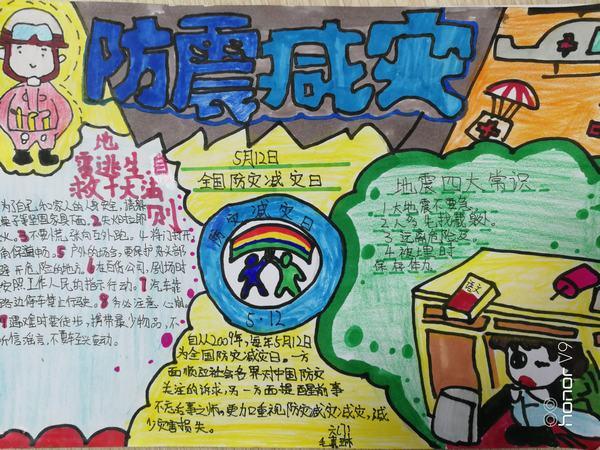 防震减灾
地
震逃生自
救十大法
则
为了自己和家人的人身安全,请躲
桌子等坚固家具下面。2.失火时立即
火。3.不要慌张向户外跑。4.将门打开
确保通畅。5.户外的场合,要保护好头部
避开危险的地方。6.在百货公司,剧场时
按照工作人员的指示行动。7.汽车靠
路边停车禁止行驶。8.务必注意
9.避难时要徒步,携带最少物品,不
听信谣言,不要轻举妄动。
5月12日
全国防灾减灾日
防灾减灾日
5·12
自从2009年,每年5月12日
为全国防灾减灾日。一方
面顺应社会各界对中国防灾
关注的诉求,另一方面提醒前事
不忘后事之师。更加重视防灾减灾,减
少灾害损失。
地震四大常识
1.大地震不要急。
2.人多先找藏身处。
3.远离危险区
4.被埋时
保存体力
语文
honor V9